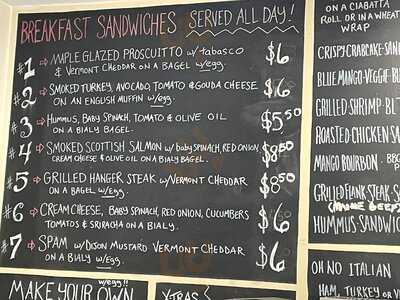 BREAKFAST SANDWICHES SERVED ALL DAY!
#1 MAPLE GLAZED PROSCUITTO w/tabasco $6
& VERMONT CHEDDAR ON A BAGEL w/egg.
#2 SMOKED TURKEY, AVOCADO, TOMATO & GOUDA CHEESE $6
ON AN ENGLISH MUFFIN w/egg.
#3 HUMMUS, BABY SPINACH, TOMATO & OLIVE OIL $5.50
ON A BIALY BAGEL.
#4 SMOKED SCOTTISH SALMON w/ baby SPINACH, RED ONION, $8.50
CREAM CHEESE & OLIVE OIL ON A BIALY BAGEL.
#5 GRILLED HANGER STEAK w/VERMONT CHEDDAR $8.50
ON A BAGEL w/egg.
#6 CREAM CHEESE, BABY SPINACH, RED ONION, CUCUMBERS $6
TOMATOS & SRIRACHA ON A BIALY.
#7 SPAM w/DIJON MUSTARD VERMONT CHEDDAR $6
ON A BIALY w/Egg.
w/egg!!
MAKE YOUR OWN
XTRAS
ON A CIABATTA
ROLL OR IN A WHEAT
WRAP
CRISPY CRABCAKE-SAND
BLUE MANGO-VEGGIE-BU
GRILLED SHRIMP-BLT
ROASTED CHICKEN SA
MANGO BOURDON. BBQ
GRILLED FLANK STEAK-S
HUMMUS-SANDWIC
OH NO ITALIAN
HAM, TURKEY OR